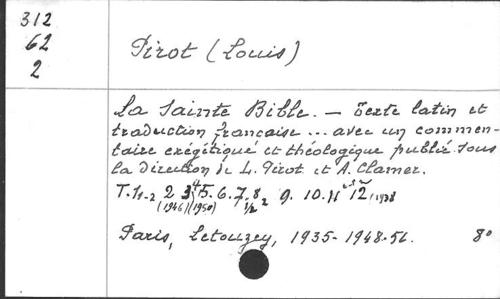 312
62
2
Pirot (Louis)
La Sainte Bible. — Texte latin et
traduction française ... avec un commen-
taire exégétique et théologique publié sous
la direction de L. Pirot et A. Clamer.
T. 1 1-2 2 3 4 5. 6. 7. 8 9. 10. 11 12
(1946) (1950) 1/2 2 1938
Paris, Letouzey, 1935-1948-51. 8°